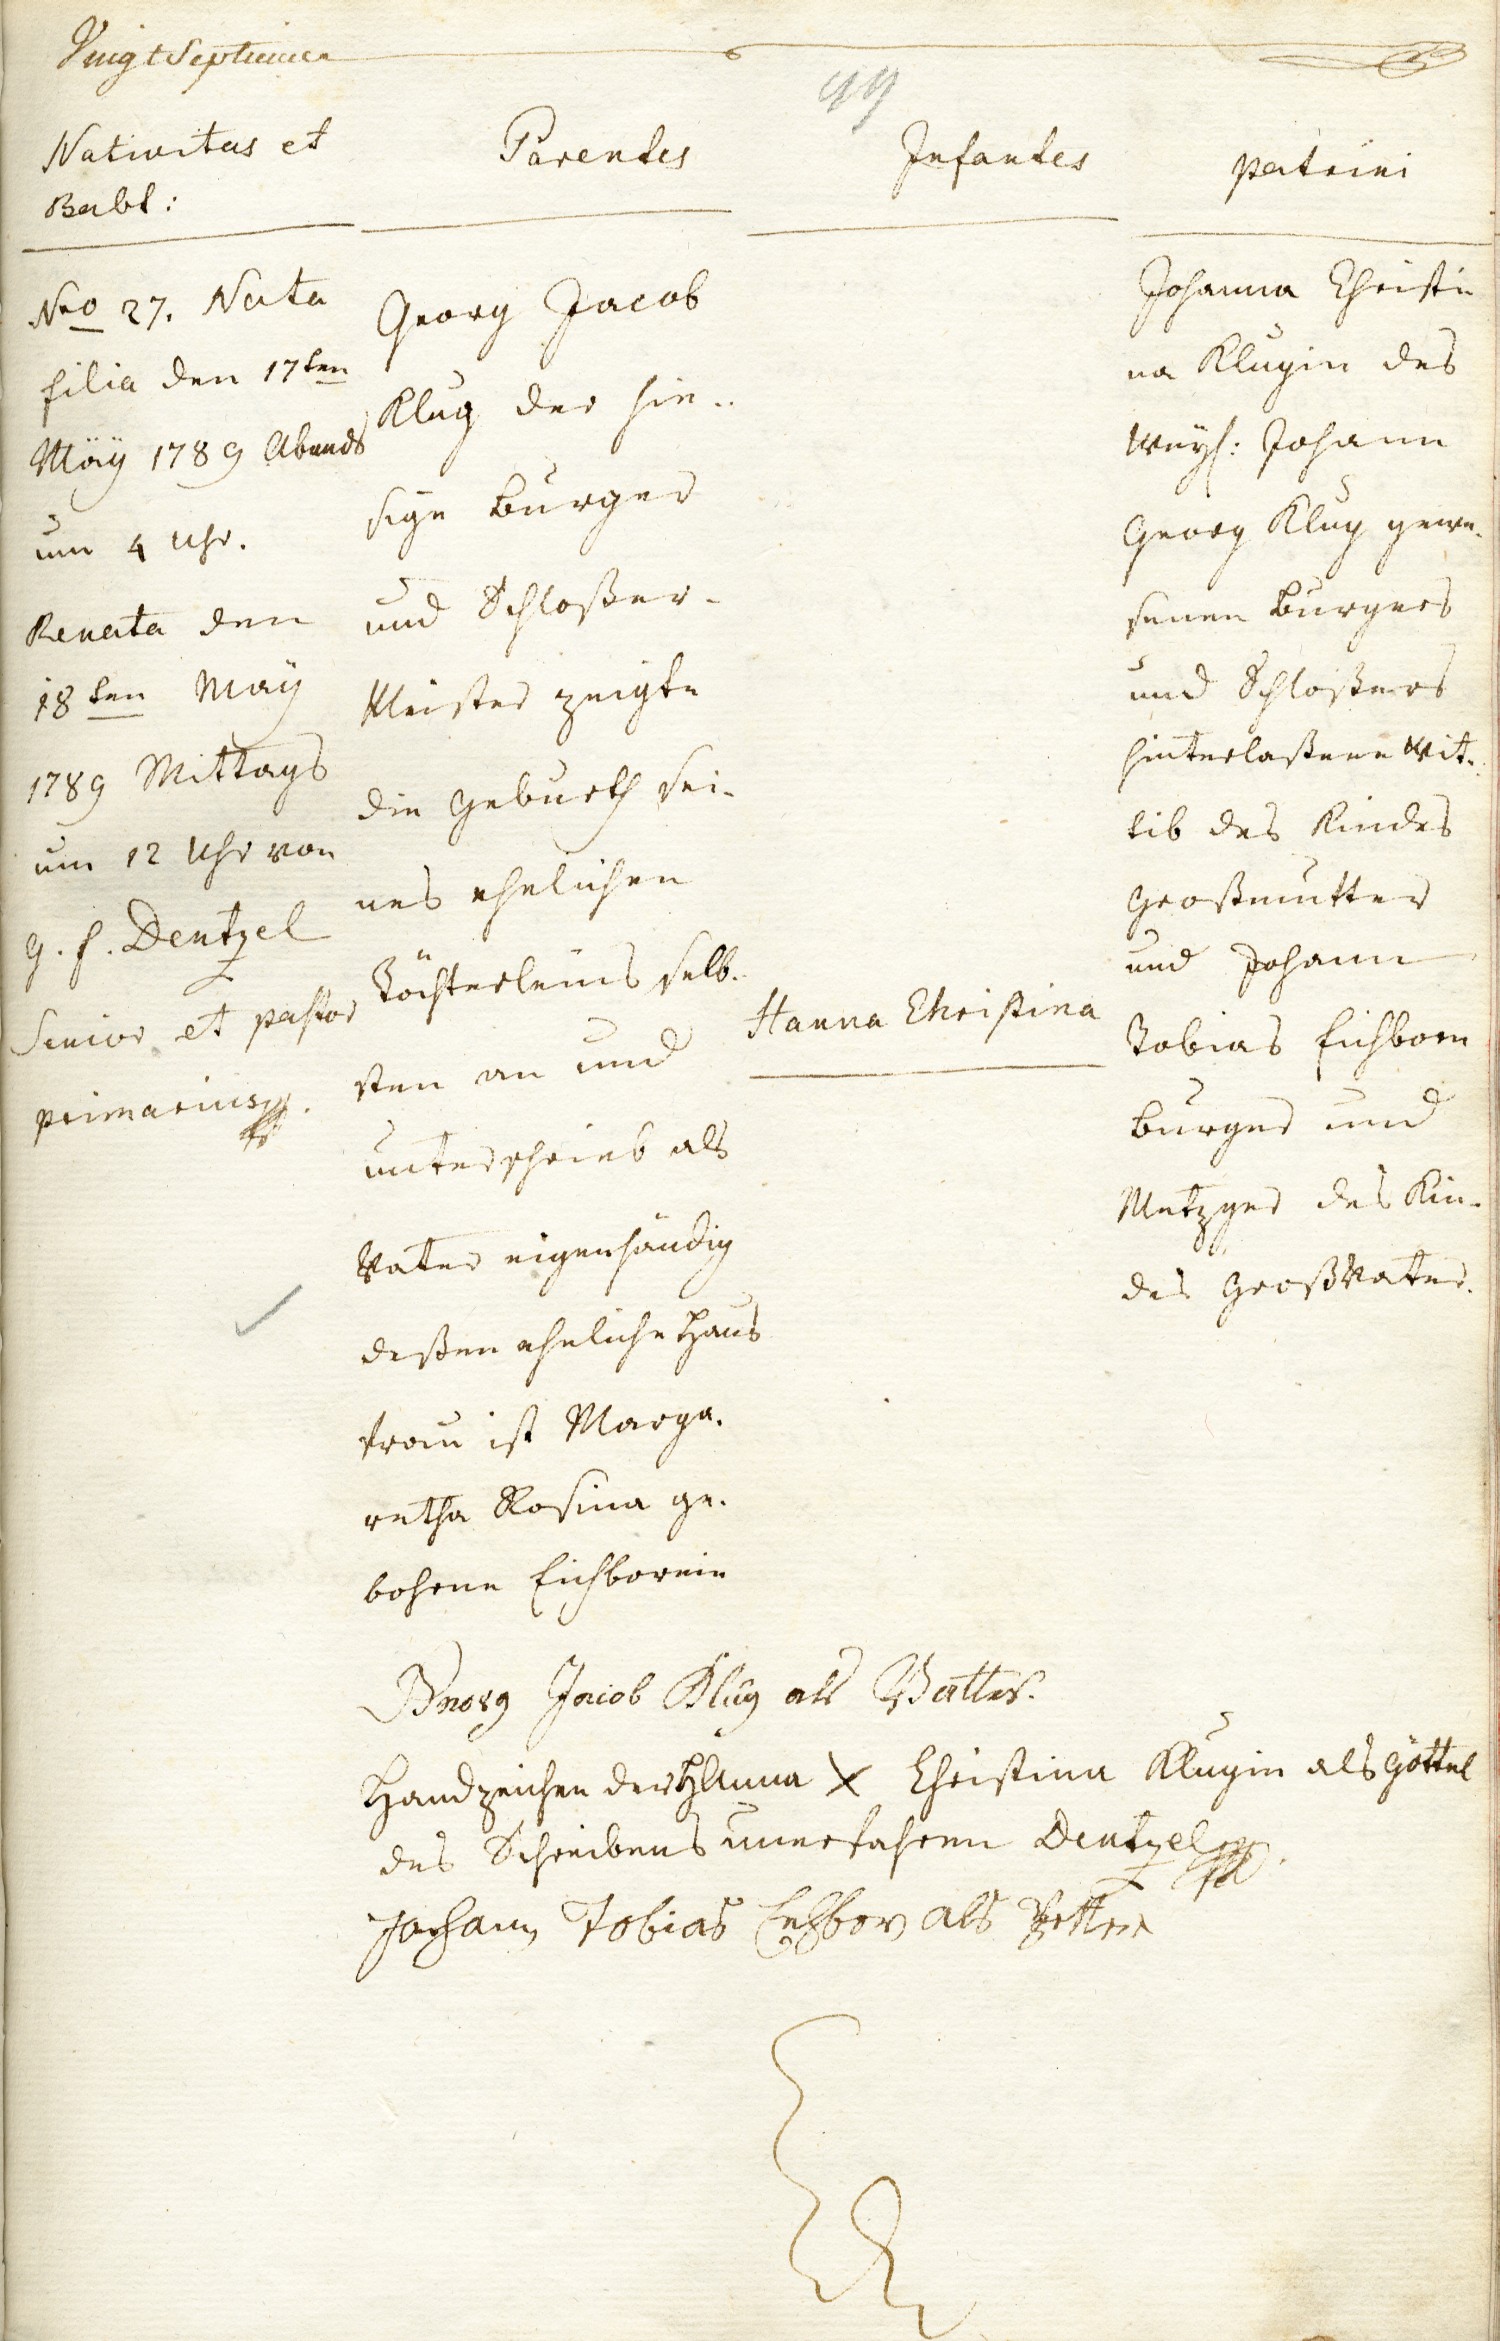 Vingt Septieme
99
Nativitas et
Babt:
Parentes
Infantes
patrini
Nro 27. Nata
filia den 17ten
Maÿ 1789 Abends
um 4 Uhr.
Renata den
18ten Maÿ
1789 Mittags
um 12 Uhr von
G. F. Dentzel
Senior et pastor
primarius
Georg Jacob
Klug der hie-
sige Burger
und Schloßer-
Meister zeigte
die Geburth sei-
nes ehelichen
Töchterleins selb-
sten an und
unterschrieb als
Vater eigenhändig
deßen eheliche Haus
frau ist Marga-
retha Rosina ge-
bohrne Eichbornin
Hanna Christina
Johanna Christi
na Klugin des
weyl: Johann
Georg Klug gewe-
senen Burgers
und Schloßers
hinterlaßene Wit-
tib des Kindes
Großmutter
und Johann
Tobias Eichborn
Burger und
Metzger des Kin-
des Großvater.
Georg Jacob Klug als Vatter.
Handzeichen der Hanna X Christina Klugin als Göttel
des Schreibens unerfahren Dentzel
Johann Tobias Eichbor als Petter